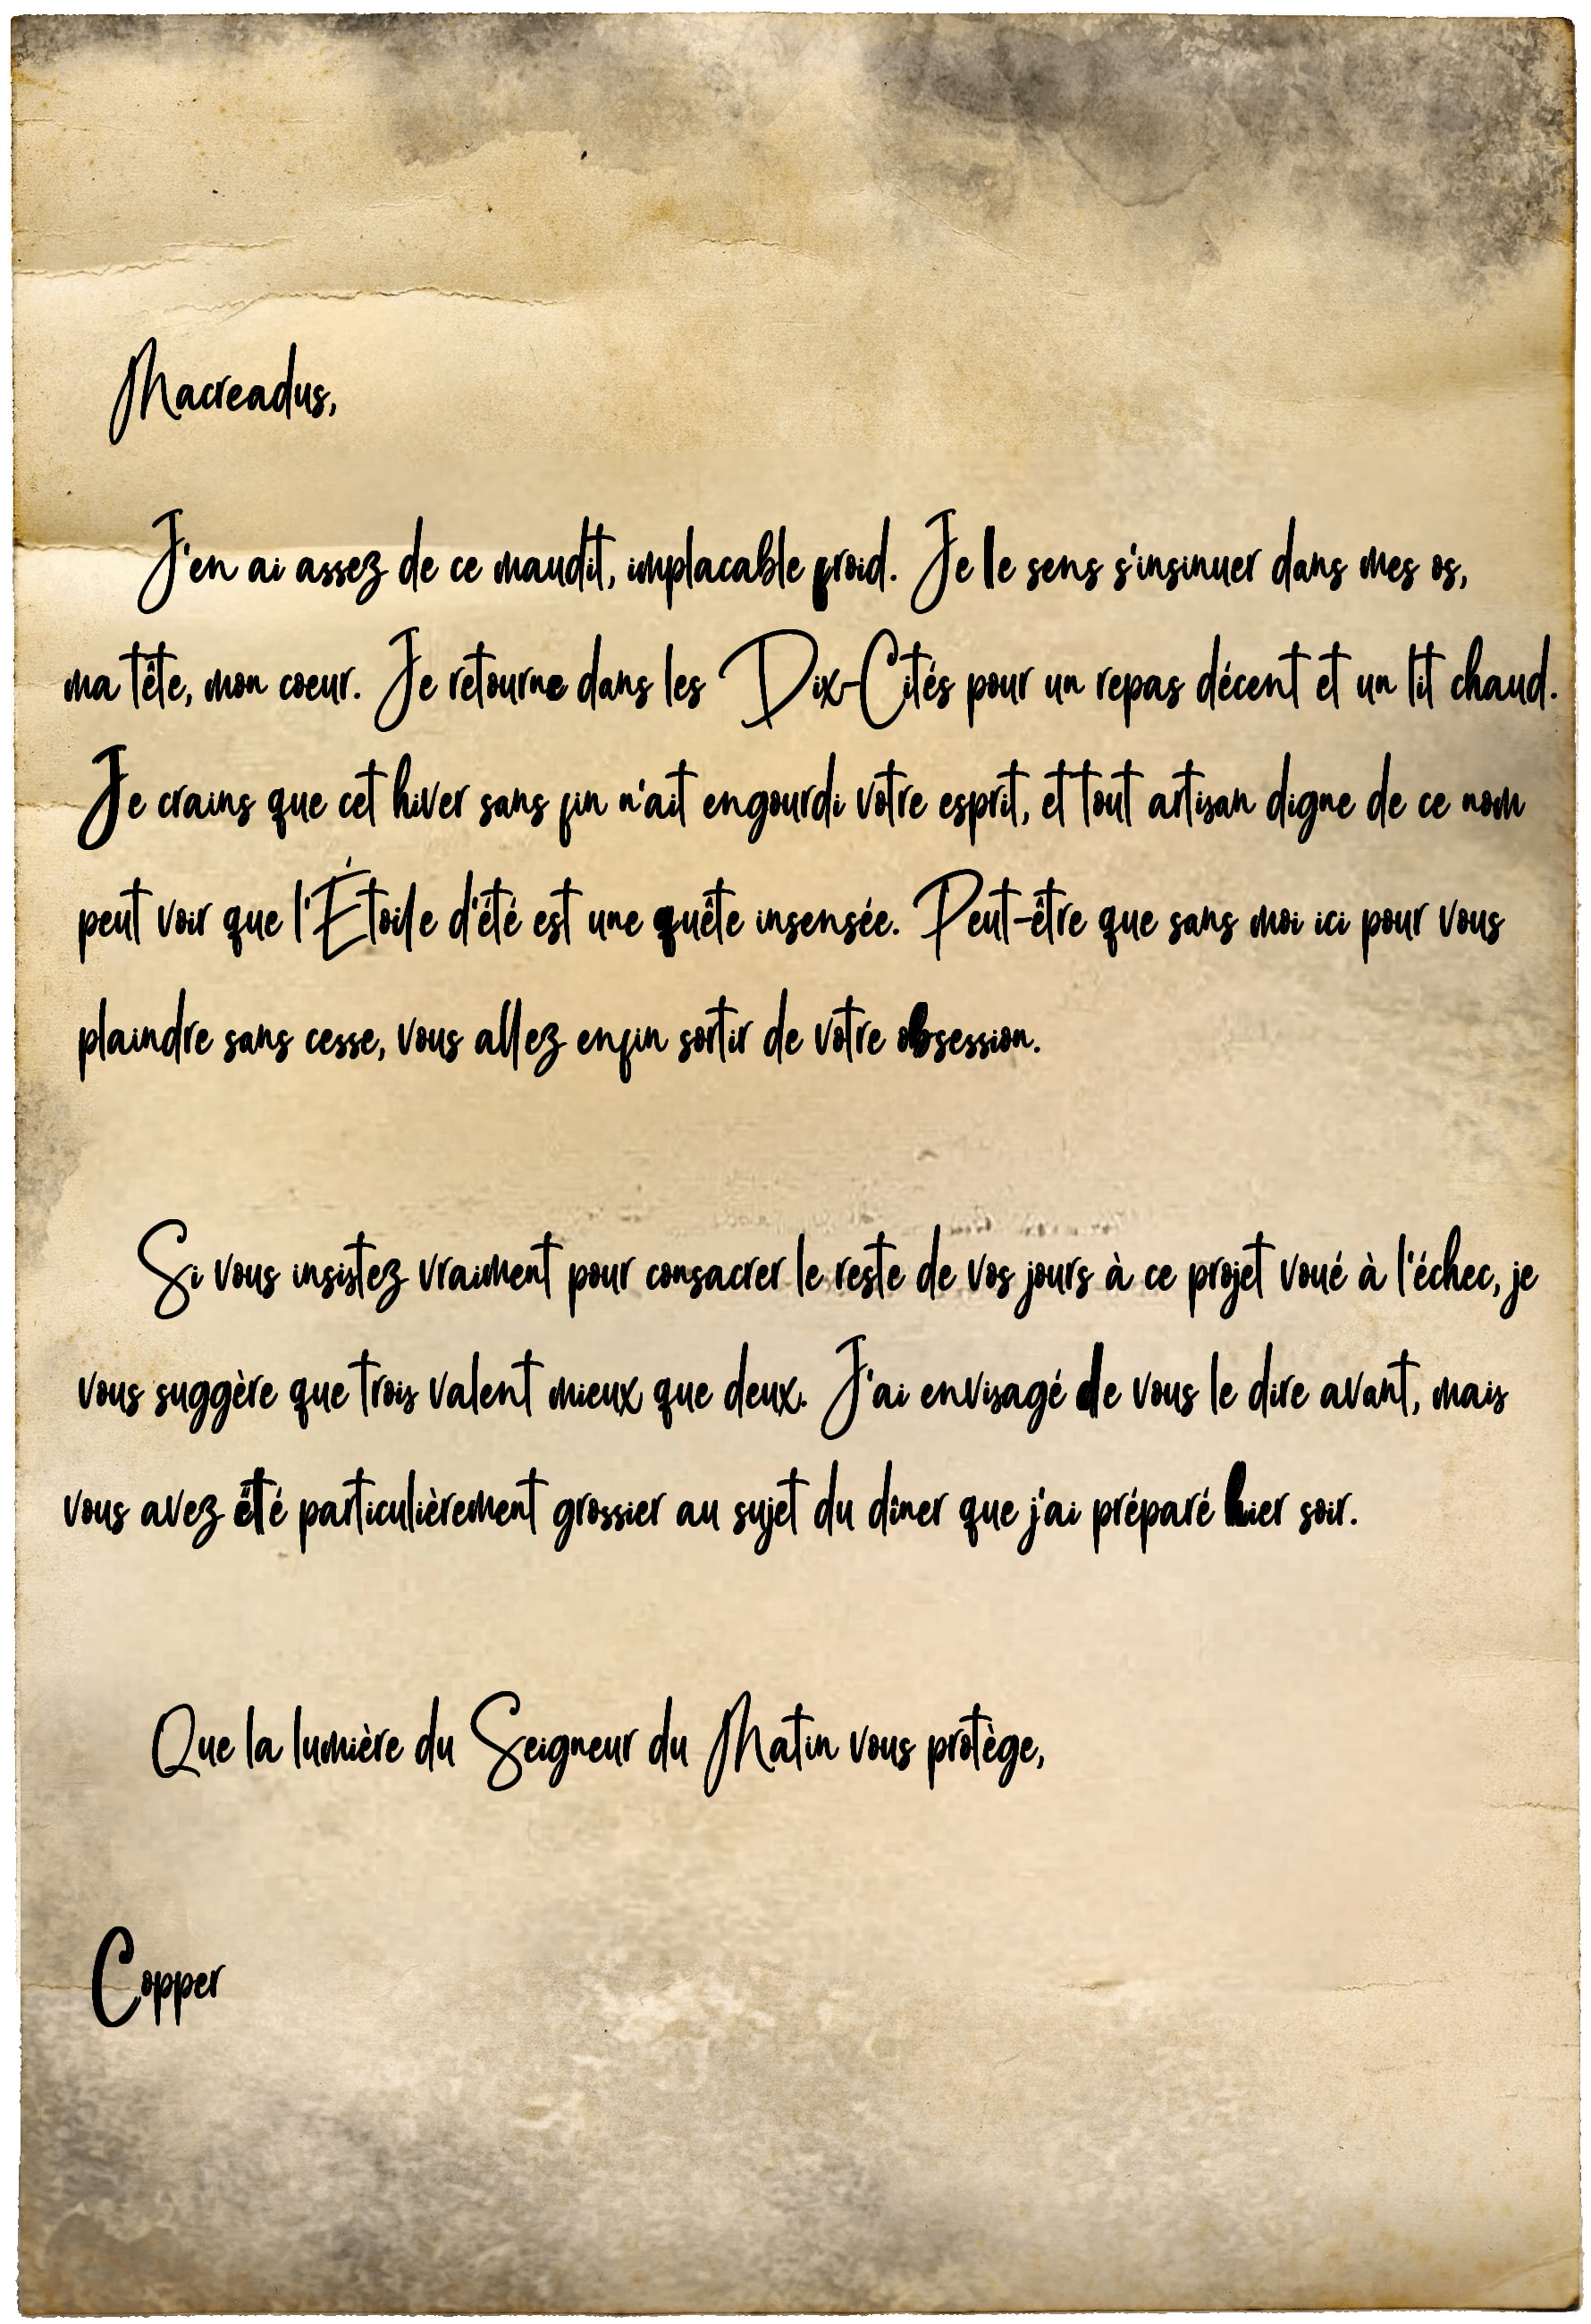 Macreadus,
J'en ai assez de ce maudit, implacable froid. Je le sens s'insinuer dans mes os,
ma tête, mon coeur. Je retourne dans les Dix-Cités pour un repas décent et un lit chaud.
Je crains que cet hiver sans fin n'ait engourdi votre esprit, et tout artisan digne de ce nom
peut voir que l'Étoile d'été est une quête insensée. Peut-être que sans moi ici pour vous
plaindre sans cesse, vous allez enfin sortir de votre obsession.
Si vous insistez vraiment pour consacrer le reste de vos jours à ce projet voué à l'échec, je
vous suggère que trois valent mieux que deux. J'ai envisagé de vous le dire avant, mais
vous avez été particulièrement grossier au sujet du dîner que j'ai préparé hier soir.
Que la lumière du Seigneur du Matin vous protège,
Copper